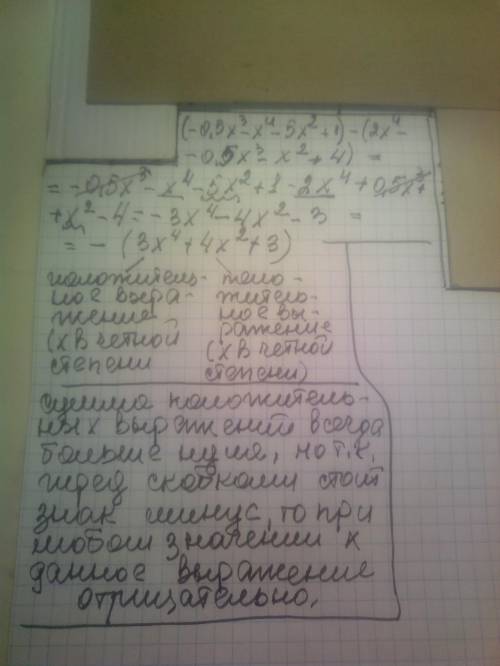 (-0,5x³-x⁴-5x²+1)-(2x⁴-
-0,5x³-x²+4) =
= -0,5x³-x⁴-5x²+1-2x⁴+0,5x³+
+x²-4=-3x⁴-4x²-3 =
= - (3x⁴+4x²+3)
положитель-
ное выра-
жение
(x в четной
степени
поло-
житель-
ное вы-
ражение
(x в четной
степени)
сумма положитель-
ных выражений всегда
больше нуля, но т.к.
перед скобками стоит
знак минус, то при
любом значении x
данное выражение
отрицательно.